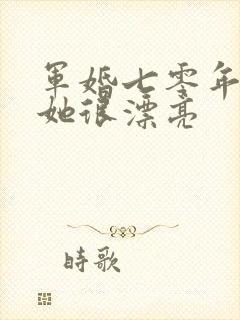 軍婚七零年
她很漂亮
時歌